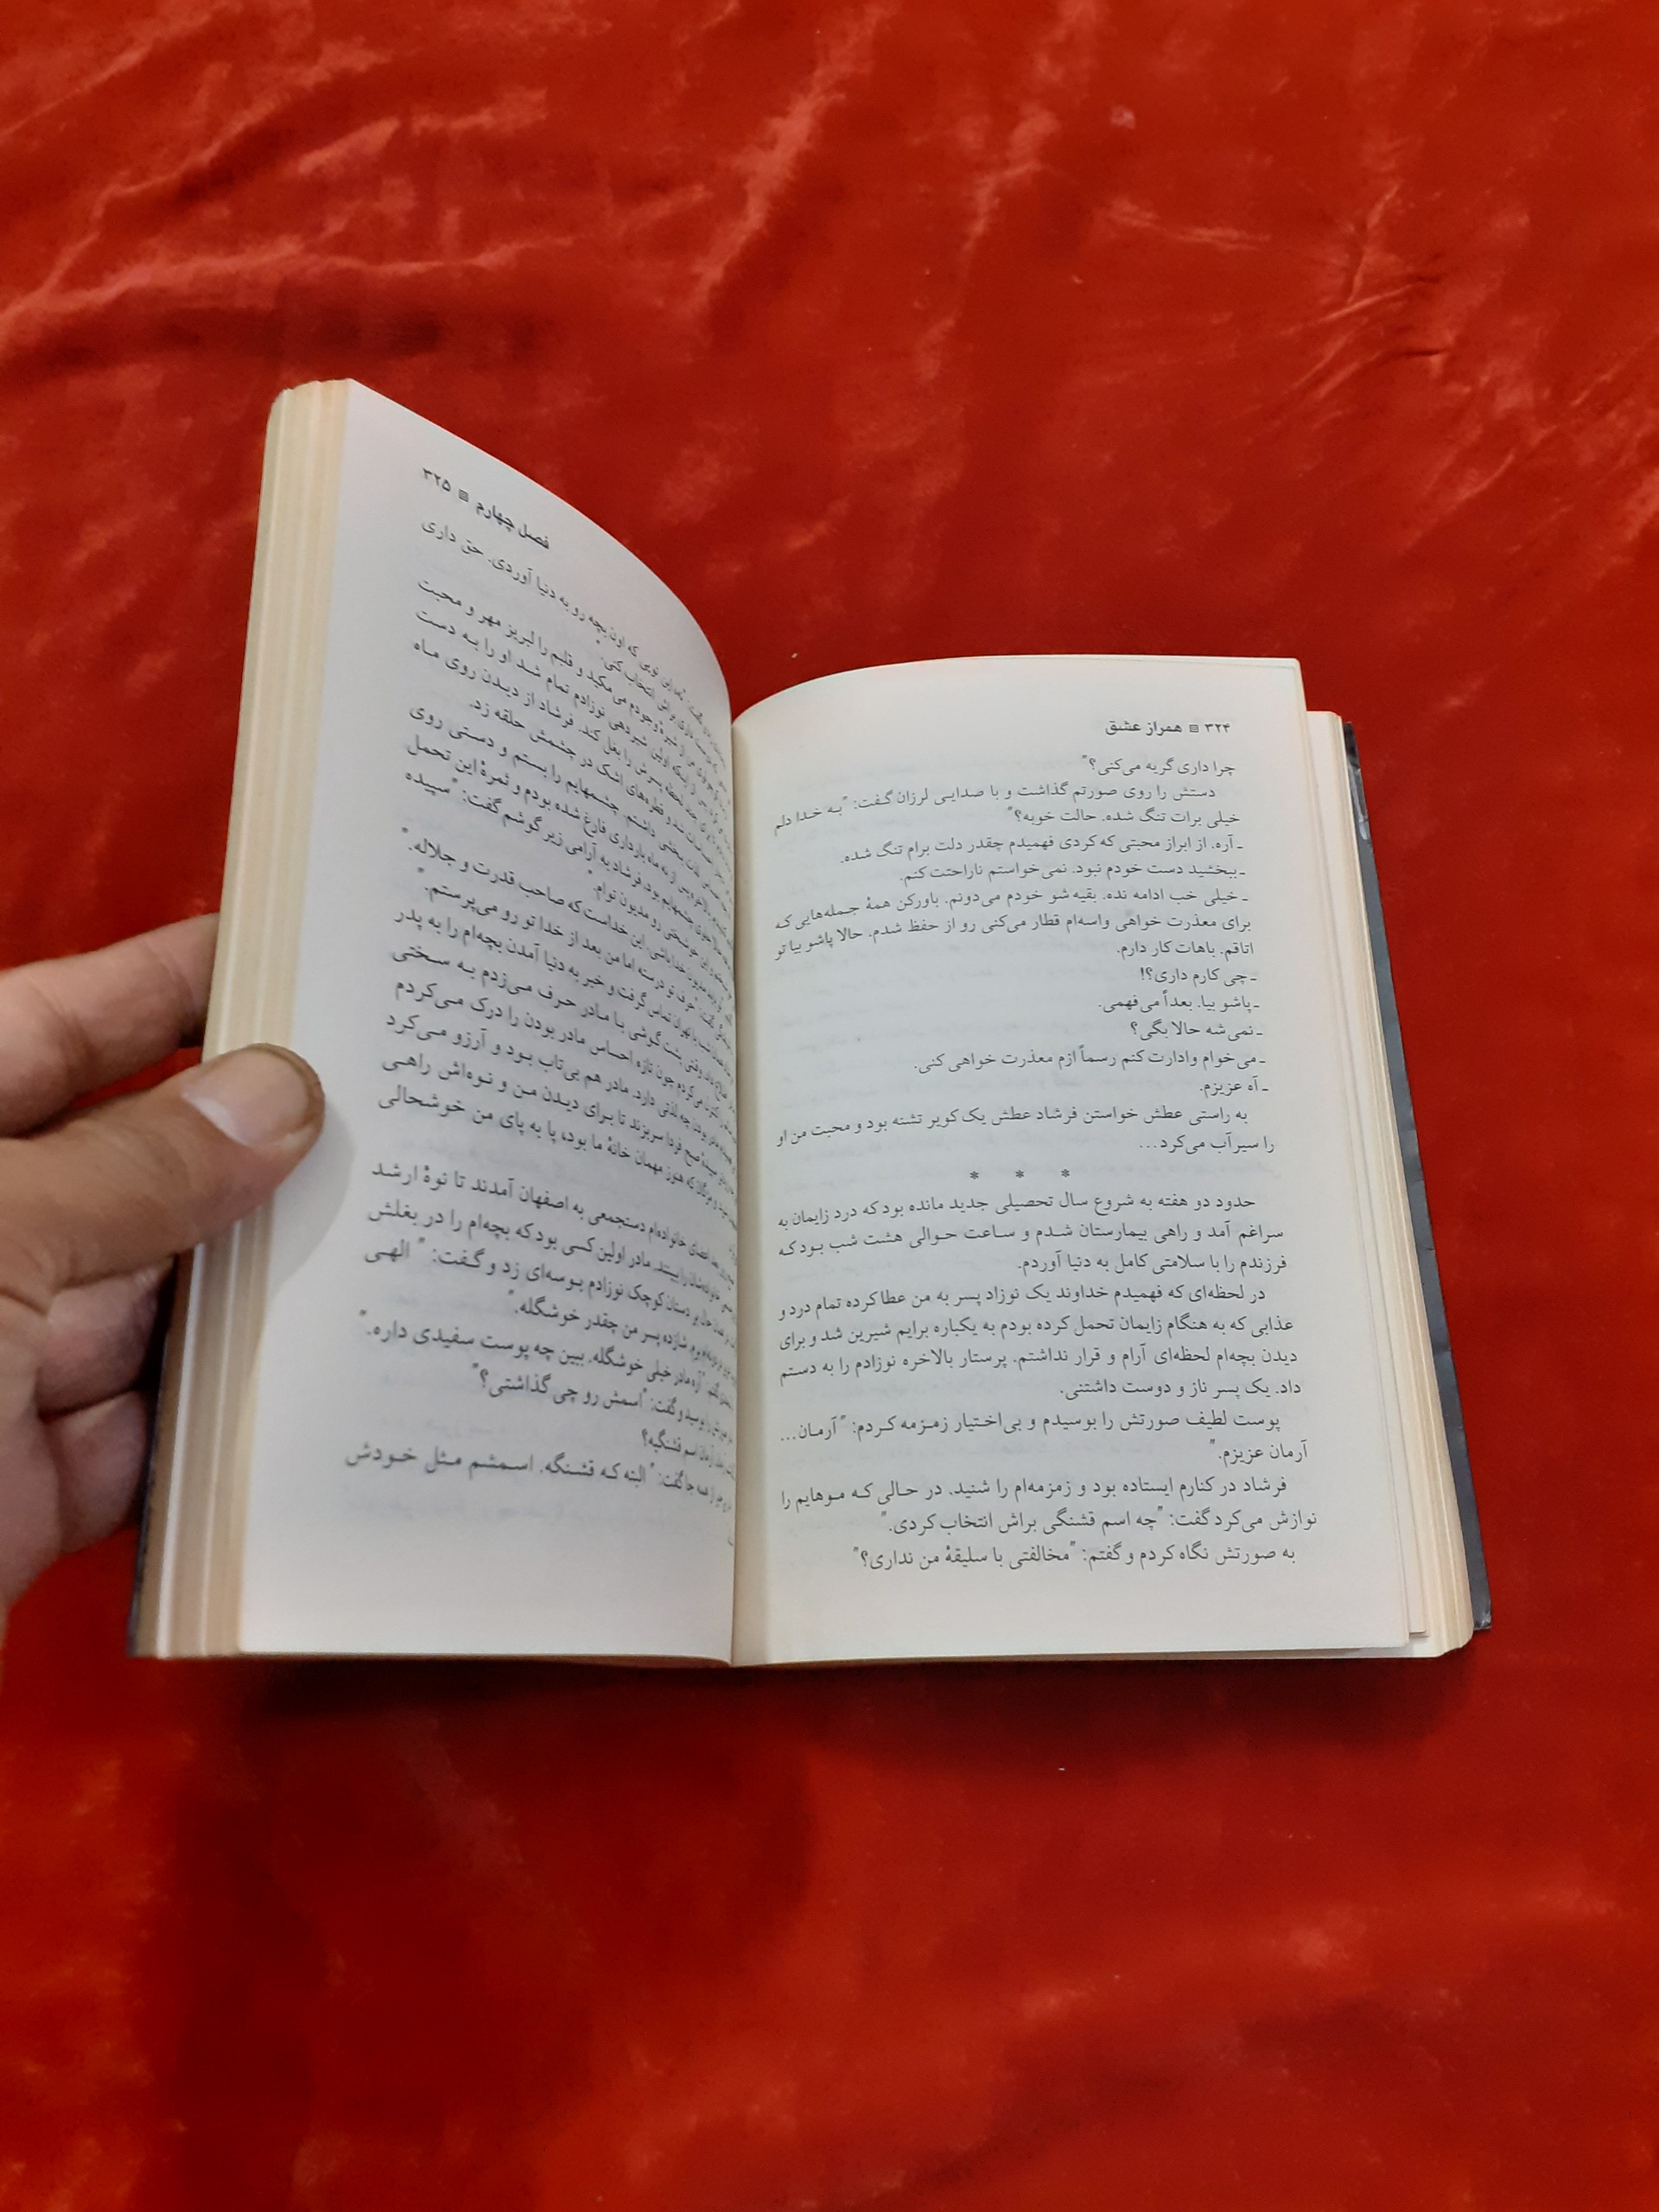 ۳۲۴ همراز عشق
چرا داری گریه می‌کنی؟"
دستش را روی صورتم گذاشت و با صدایی لرزان گفت: "به خدا دلم
خیلی برات تنگ شده. حالت خوبه؟"
ـ آره. از ابراز محبتی که کردی فهمیدم چقدر دلت برام تنگ شده.
ـ ببخشید دست خودم نبود. نمی‌خواستم ناراحتت کنم.
ـ خیلی خب ادامه نده. بقیه شو خودم می‌دونم. باورکن همهٔ جمله‌هایی که
برای معذرت خواهی واسه‌ام قطار می‌کنی رو از حفظ شدم. حالا پاشو بیا تو
اتاقم. باهات کار دارم.
ـ چی کارم داری؟!
ـ پاشو بیا. بعداً می‌فهمی.
ـ نمی‌شه حالا بگی؟
ـ می‌خوام وادارت کنم رسماً ازم معذرت خواهی کنی.
ـ آه عزیزم.
به راستی عطش خواستن فرشاد عطش یک کویر تشنه بود و محبت من او
را سیرآب می‌کرد...
* * *
حدود دو هفته به شروع سال تحصیلی جدید مانده بود که درد زایمان به
سراغم آمد و راهی بیمارستان شدم و ساعت حوالی هشت شب بود که
فرزندم را با سلامتی کامل به دنیا آوردم.
در لحظه‌ای که فهمیدم خداوند یک نوزاد پسر به من عطا کرده تمام درد و
عذابی که به هنگام زایمان تحمل کرده بودم به یکباره برایم شیرین شد و برای
دیدن بچه‌ام لحظه‌ای آرام و قرار نداشتم. پرستار بالاخره نوزادم را به دستم
داد. یک پسر ناز و دوست داشتنی.
پوست لطیف صورتش را بوسیدم و بی‌اختیار زمزمه کردم: "آرمان...
آرمان عزیزم."
فرشاد در کنارم ایستاده بود و زمزمه‌ام را شنید. در حالی که موهایم را
نوازش می‌کرد گفت: "چه اسم قشنگی براش انتخاب کردی."
به صورتش نگاه کردم و گفتم: "مخالفتی با سلیقهٔ من نداری؟"
فصل چهارم ۳۲۵
که اون بچه رو به دنیا آوردی. حق داری
انتخاب کنی."
وجودم می‌مکید و قلبم را لبریز مهر و محبت
اینکه اولین شیردهی نوزادم تمام شد او را به دست
لحظه پسرش را بغل کند. فرشاد از دیدن روی ماه
شد و قطره‌های اشک در چشمش حلقه زد.
داشتم. چشمهایم را بستم و دستی روی
از نه ماه بارداری فارغ شده بودم و ثمرهٔ این تحمل
چشمهایم بود. فرشاد به آرامی زیر گوشم گفت: "سپیده
این خوشبختی رو مدیون توام."
مدیون خدا باشی. این خداست که صاحب قدرت و جلاله."
گفت: "حرف تو درسته اما من بعد از خدا تو رو می‌پرستم."
با تهران تماس گرفت و خبر به دنیا آمدن بچه‌ام را به پدر
وقتی پشت گوشی با مادر حرف می‌زدم به سختی
می‌کردم چون تازه احساس مادر بودن را درک می‌کردم
چه لذتی دارد. مادر هم بی‌تاب بود و آرزو می‌کرد
صبح فردا سر بزند تا برای دیدن من و نوه‌اش راهی
که هنوز مهمان خانهٔ ما بود، پا به پای من خوشحالی
اعضای خانواده‌ام دستجمعی به اصفهان آمدند تا نوهٔ ارشد
را ببینند. مادر اولین کسی بود که بچه‌ام را در بغلش
حال بر دستان کوچک نوزادم بوسه‌ای زد و گفت: "الهی
شازده پسر من چقدر خوشگله."
مادر خیلی خوشگله. ببین چه پوست سفیدی داره."
بوسید و گفت: "اسمش رو چی گذاشتی؟"
اسم قشنگیه؟
جا گفت: "البته که قشنگه. اسمشم مثل خودش